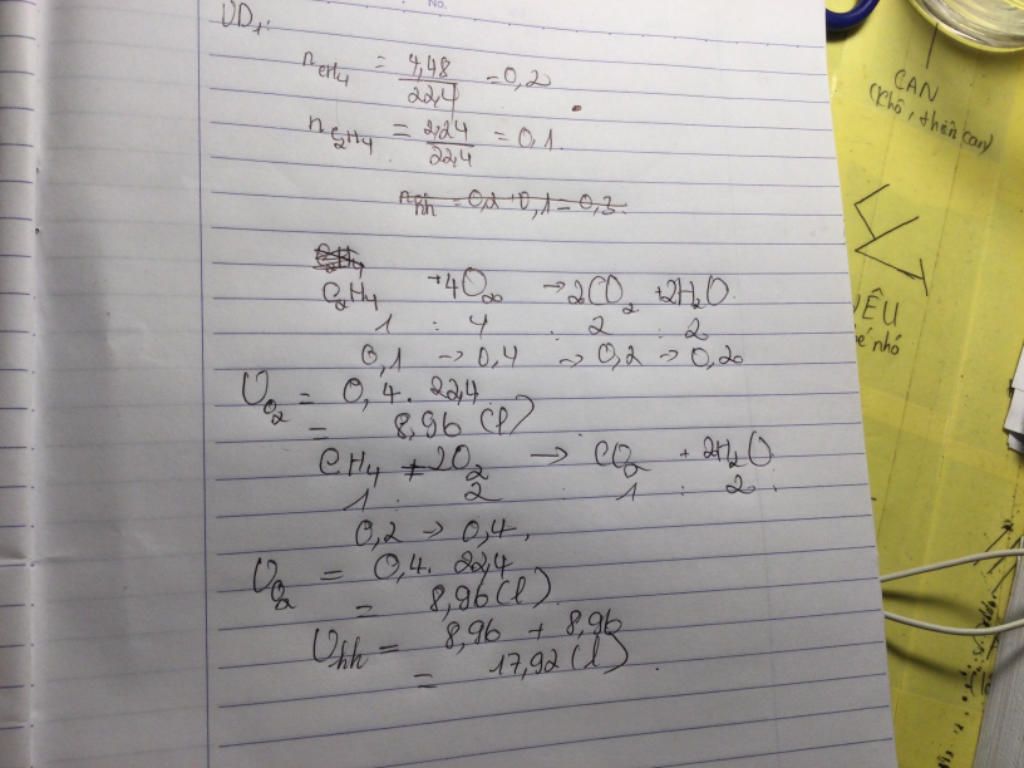 No.
VD1:
nCH4 = 4,48/22,4 = 0,2
nC2H4 = 2,24/22,4 = 0,1.
nhh = 0,2 + 0,1 = 0,3.
C2H4
C2H4 + 4O2 → 2CO2 + 2H2O
1 : 4 : 2 : 2
0,1 → 0,4 → 0,2 → 0,2
VO2 = 0,4. 22,4
= 8,96 (l)
CH4 + 2O2 → CO2 + 2H2O
1 : 2 : 1 : 2.
0,2 → 0,4.
VO2 = 0,4. 22,4
= 8,96 (l)
Vhh = 8,96 + 8,96
= 17,92 (l).
CAN
(khô, thân can)
YÊU
bé nhỏ